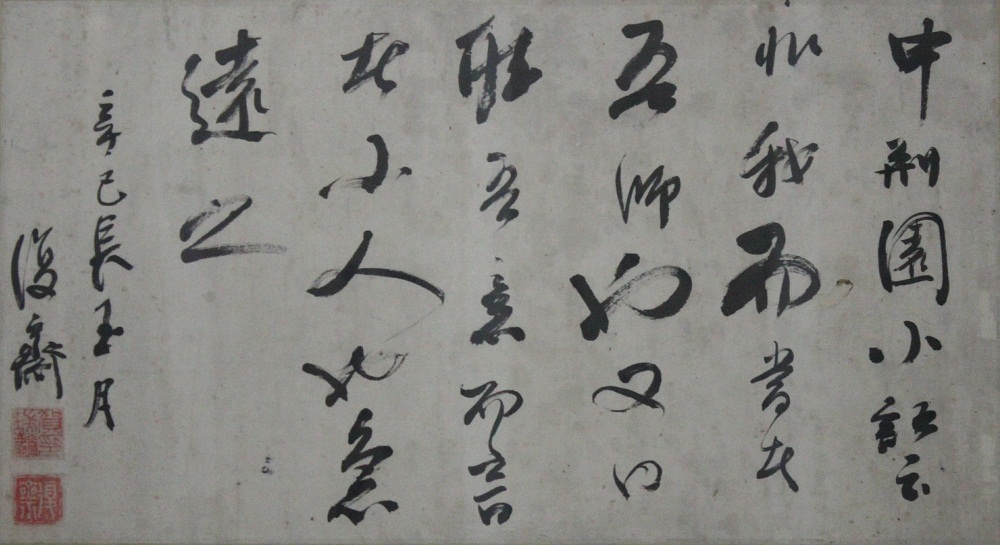 申荆園小語云
非我而當者
吾師也又曰
吾意而言
者小人也急
遠之
辛巳長至月
復齋
復齋